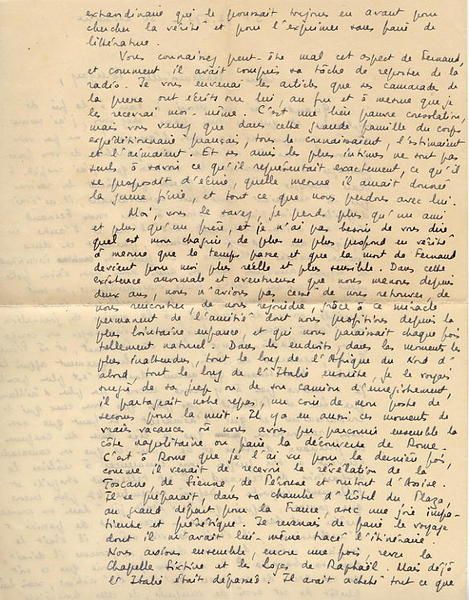 extraordinaire qui le poussait toujours en avant pour
chercher la vérité et pour l'exprimer sans faire de
littérature.
Vous connaissez peut-être mal cet aspect de Fernand,
et comment il avait compris sa tâche de reporter de la
radio. Je vous enverrai les articles que ses camarades de
la presse ont écrits sur lui, au fur et à mesure que je
les recevrai moi-même. C'est une bien pauvre consolation,
mais vous verrez que dans cette grande famille du corps
expéditionnaire français, tous le connaissaient, l'estimaient
et l'aimaient. Et ses amis les plus intimes ne sont pas
seuls à savoir ce qu'il représentait exactement, ce qu'il
se proposait d'écrire, quelle mesure il aurait donnée
la guerre finie, et tout ce que nous perdons avec lui.
Moi, vous le savez, je perds plus qu'un ami
et plus qu'un frère, et je n'ai pas besoin de vous dire
quel est mon chagrin, de plus en plus profond en vérité
à mesure que le temps passe et que la mort de Fernand
devient pour moi plus réelle et plus sensible. Dans cette
existence anormale et aventureuse que nous menons depuis
deux ans, nous n'avions pas cessé de nous retrouver, de
nous rencontrer, de nous rejoindre, grâce à ce miracle
permanent de l'amitié dont nous profitions depuis la
plus lointaine enfance, et qui nous paraissait chaque fois
tellement naturel. Dans les endroits, dans les moments les
plus inattendus, tout le long de l'Afrique du Nord d'
abord, tout le long de l'Italie ensuite, je le voyais
surgir de sa jeep ou de son camion d'enregistrement,
il partageait notre repas, un coin de mon poste de
secours pour la nuit. Il y a eu aussi ces moments de
vraies vacances où nous avons pu parcourir ensemble la
côte napolitaine ou faire la découverte de Rome.
C'est à Rome que je l'ai vu pour la dernière fois,
comme il venait de recevoir la révélation de la
Toscane, de Sienne, de Pérouse et surtout d'Assise.
Il se préparait, dans sa chambre d'hôtel du Plaza,
au grand départ pour la France avec une joie impa-
tiente et prophétique. Je revenais de faire le voyage
dont il m'avait lui-même tracé l'itinéraire.
Nous avions ensemble, encore une fois, revu la
Chapelle Sixtine et les Loges de Raphaël. Mais déjà
l'Italie était dépassée. Il avait acheté tout ce que